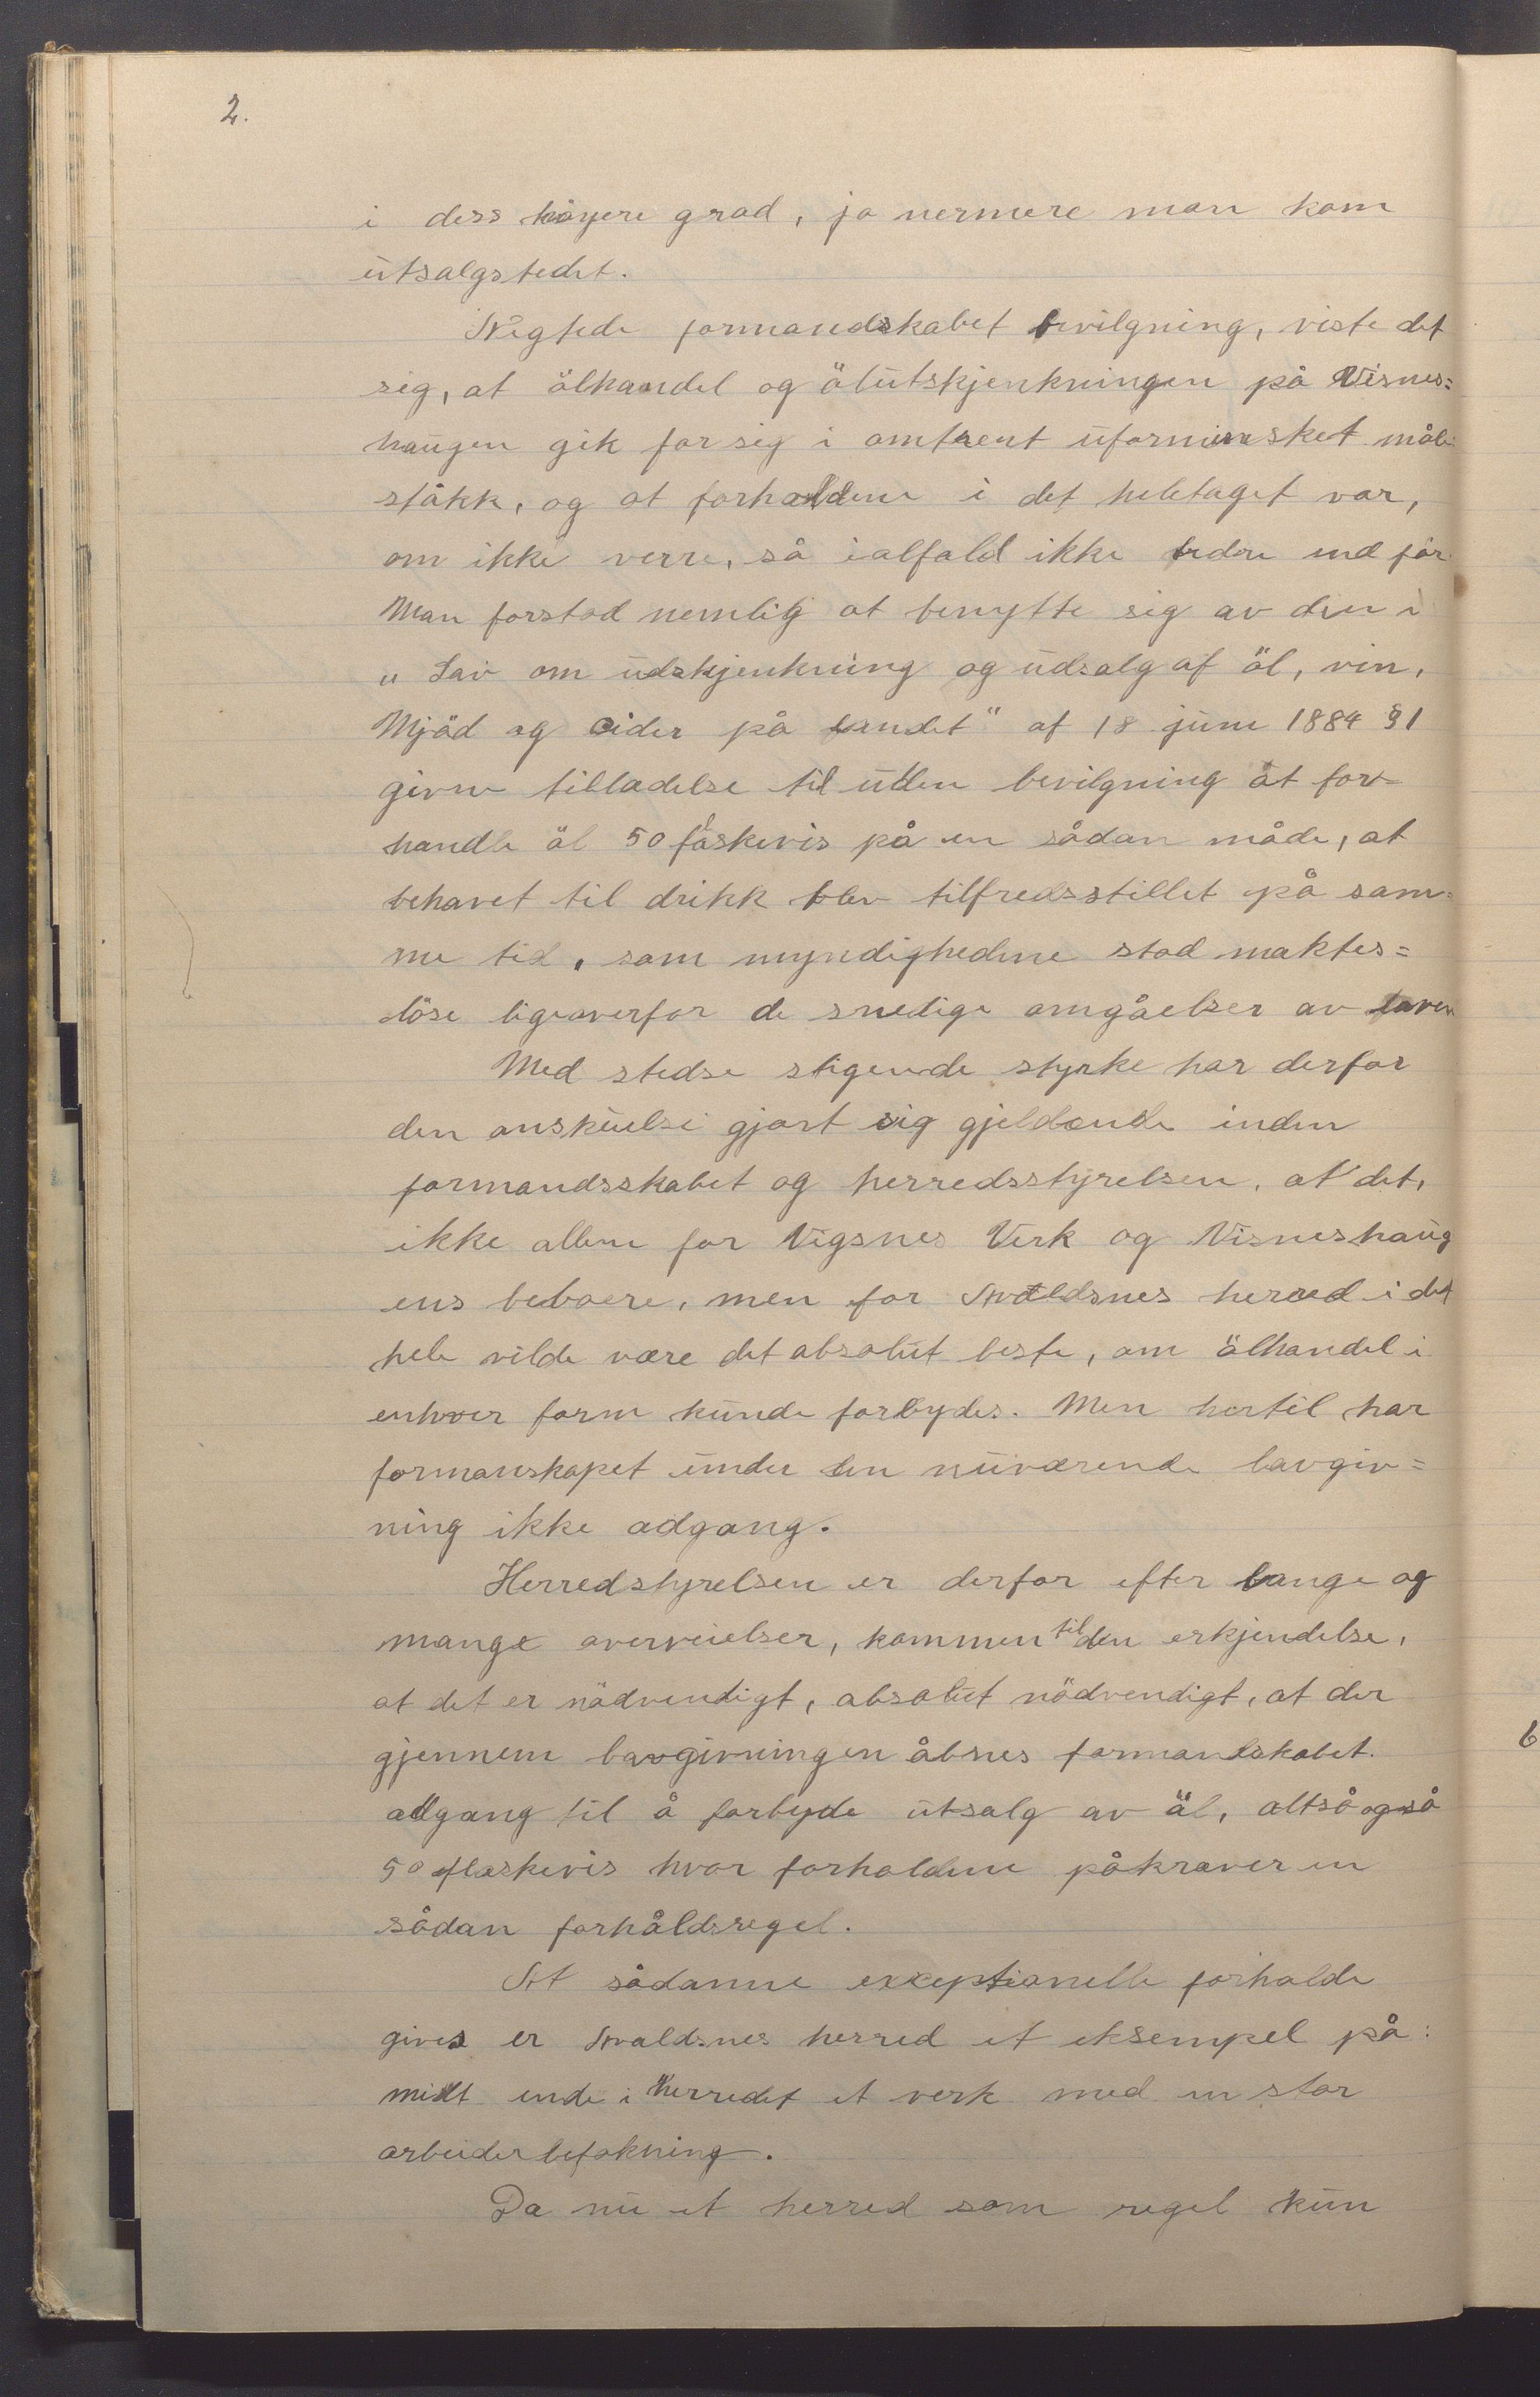 2.
i dess höyere grad, jo nermere man kom
utsalgstedet.
Negtede formandskabet bevilgning, viste det
sig, at ölhandel og ölutskjenkningen på Visnes=
haugen gik for sig i omtrent uforminsket måle
ståkk, og at forholdene i det heletaget var,
om ikke verre, så ialfald ikke bedre end för.
Man forstod nemlig at benytte sig av den i
„Lov om udskjenkning og udsalg af öl, vin,
Mjöd og cider på landet" af 18 juni 1884 § 1
givne tilladelse til uden bevilgning at for-
handle öl 50 flaskevis på en sådan måde, at
behovet til drikk blev tilfredsstillet på sam=
me tid, som myndighedene stod maktes=
löse ligeoverfor de snedige omgåelser av loven
Med stedse stigende styrke har derfor
den anskuelse gjort sig gjeldende inden
formandsskabet og herredsstyrelsen, at det,
ikke allene for Vigsnes Verk og Visneshaug
ens beboere, men for Avaldsnes herred i det
hele vilde være det absolut beste, om ölhandel i
enhver form kunde forbydes. Men hertil har
formanskapet under den nuværende lovgiv=
ning ikke adgang.
Herredstyrelsen er derfor efter lange og
mange overveielser, kommen til den erkjendelse,
at det er nödvendigt, absolut nödvendigt, at der
gjennem lovgivningen åbnes formandskabet.
adgang til å forbyde utsalg av öl, altså også
50 flaskevis hvor forholdene påkræver en
sådan forhåldsregel.
At sådanne exceptionelle forholde
gives er Avaldsnes herred et eksempel på:
midt inde i herredet et verk med en stor
arbeiderbefolkning.
Da nu et herred som regel kun
6